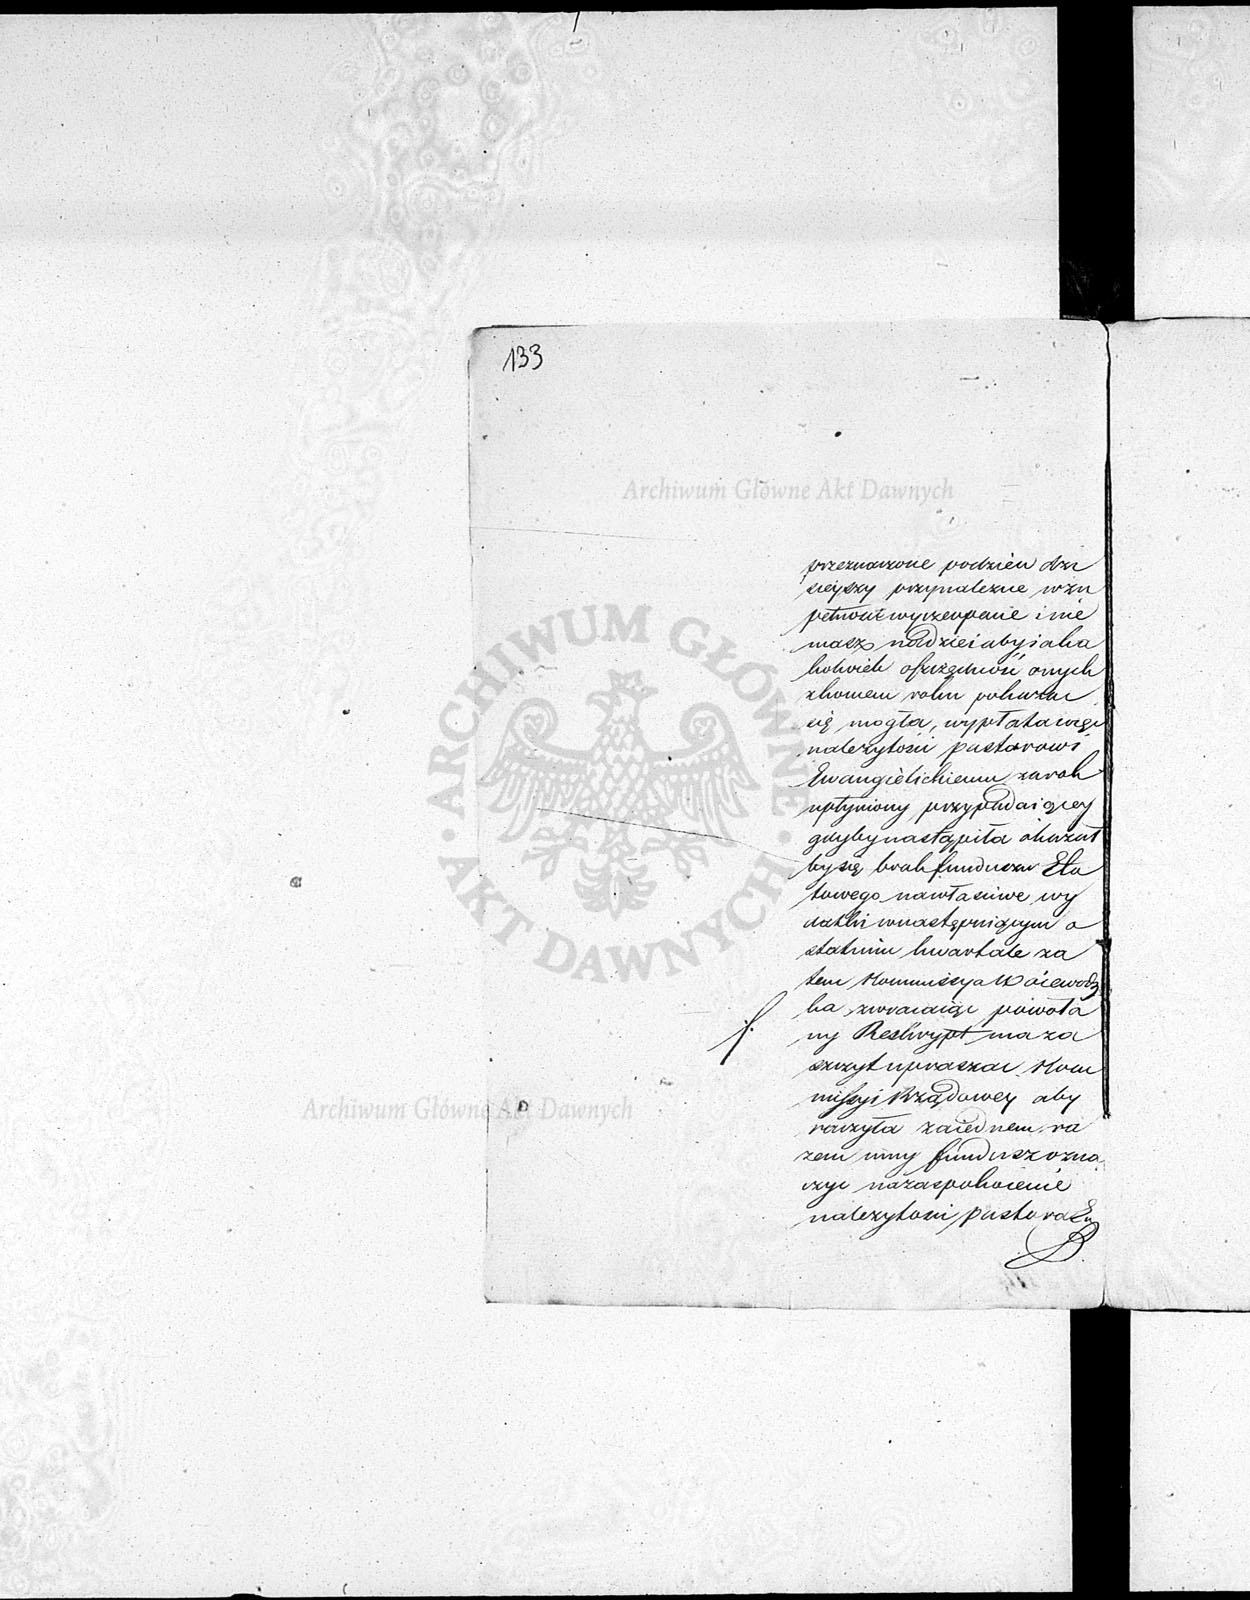 133
Archiwum Główne Akt Dawnych
przeznaczone podzień dzi
sieyszy przynależne wzu
pełności wyczerpane i nie
masz nadziei aby iaka
kolwiek oszczędność onych
z końcem roku pokazać
się mogła, wypłata więc
należytości pastorowi
Ewangielickiemu za rok
upłyniony przypadaiącey
gdyby nastąpiła okazał
by się brak funduszu Eta
towego na właściwe wy
datki w następuiącym o
statnim kwartale za
tem Kommissya Woiewodz
ka zwracaiąc powoła
ny Reskrypt ma za
szczyt upraszać Kom
missyi Rządowey aby
raczyła za iednem ra
zem inny fundusz ozna
czyć na zaspokoienie
należytości pastora Ew
ARCHIWUM GŁÓWNE · AKT DAWNYCH ·
Archiwum Główne Akt Dawnych